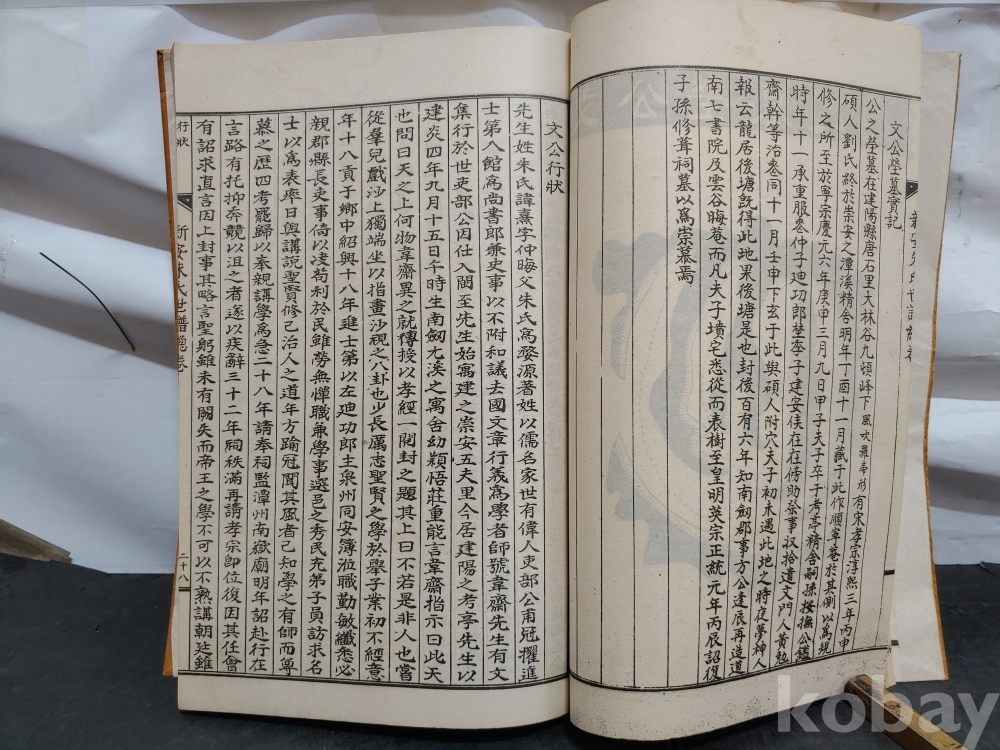 文公塋墓實記
公之塋墓在建陽縣唐石里大林谷九頓峰下風吹羅帶形有宋孝宗淳熙三年丙申
碩人劉氏終於崇安之潭溪精舍明年丁酉十一月藏于此作順寧菴於其側以爲規
修之所至於寧宗慶元六年庚申三月九日甲子夫子卒于考亭精舍嗣孫按撫公鑑
時年十一承重服叅仲子廸功郎埜季子建安侯在在傍助祭事収拾遺文門人黃勉
齋榦等治叅同十一月壬申下玄于此與碩人附穴夫子初未遇此地之時夜夢神人
報云龍居後塘旣得此地果後塘是也封後百有六年知南劔郡事方公逢辰再造道
南七書院及雲谷晦菴而凡夫子墳宅悉從而表樹至皇明英宗正統元年丙辰詔復
子孫修葺祠墓以爲崇墓焉
文公行狀
先生姓朱氏諱熹字仲晦父朱氏爲婺源著姓以儒名家世有偉人吏部公甫冠擢進
士第入館爲尚書郎兼史事以不附和議去國文章行義爲學者師號韋齋先生有文
集行於世吏部公因仕入閩至先生始寓建之崇安五夫里今居建陽之考亭先生以
建炎四年九月十五日午時生南劔尤溪之寓舍幼穎悟莊重能言韋齋指示曰此天
也問曰天之上何物韋齋異之就傅授以孝經一閱封之題其上曰不若是非人也嘗
從羣兒戲沙上獨端坐以指畫沙視之八卦也少長厲志聖賢之學於舉子業初不經意
年十八貢于鄉中紹興十八年進士第以左迪功郎主泉州同安簿涖職勤敏纖悉必
親郡縣長吏事倚以决苟利於民雖勞無憚職兼學事選邑之秀民充弟子員訪求名
士以爲表率日與講說聖賢修己治人之道年方踰冠聞其風者已知學之有師而尊
慕之歷四考罷歸以奉親講學爲急二十八年請奉祠監潭州南嶽廟明年詔赴行在
言路有托抑奔競以沮之者遂以疾辭三十二年祠秩滿再請孝宗卽位復因其任會
有詔求直言因上封事其略言聖躬雖未有闕失而帝王之學不可以不熟講朝廷雖
行狀
新安朱氏世譜總卷
二十八
kobay